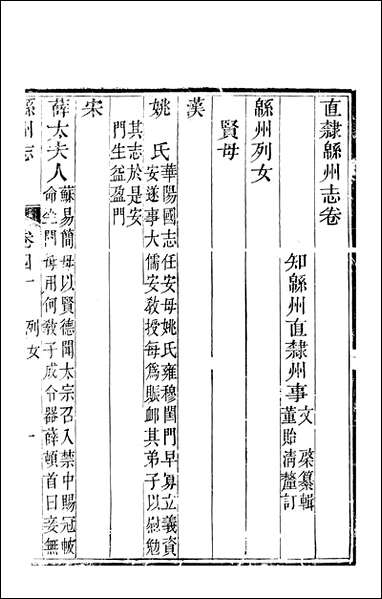 直隸緜州志卷
知緜州直隸州事文棨纂輯
董貽清釐訂
緜州列女
賢母
漢
姚氏 華陽國志任安母姚氏雍穆閨門早寡立義資
安遂事大儒安教授每為賑卹其弟子以慰勉
其志於是安
門生益盈門
宋
薛太夫人 蘇易簡母以賢德聞太宗召入禁中賜冠帔
命坐問母用何教子成令器薛頓首曰妾無
緜州志
卷四十
列女
一